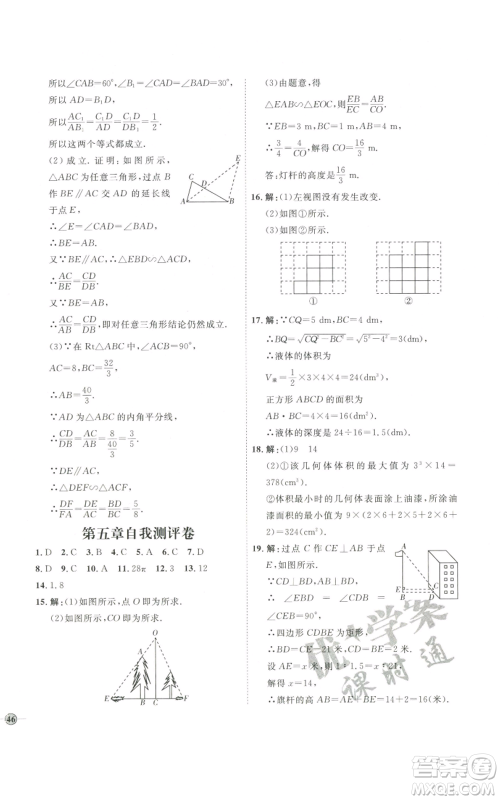 所以∠CAB=60°,∠B₁=∠CAD=∠BAD=30°.
所以 AD=B₁D.
所以AC₁/AB₁=C₁D/AD=C₁D/DB₁=1/2
所以这两个等式成立.
(2)成立. 证明:如图所示,
△ABC为任意三角形,过点
B作BE∥AC交AD的延长线
于点E,
∴∠E=∠CAD=∠BAD.
∴BE=AB.
又∵BE∥AC,∴△EBD∽△ACD.
∴AC/BE=CD/BD.
又∵BE=AB,
∴AC/AB=CD/DB,即对任意三角形结论仍然成立.
(3)∵在Rt△ABC中,∠ACB=90°,
AC=8,BC=32/3,
∴AB=40/3.
∵CD/DB=AC/AB=8/(40/3)=3/5
∵△DCF∽△ACF,
∴DF/FA=DC/AC
第五章自我测评卷
1. D 2. C 3. C 4. B 5. A 6. C 7. D
8. D 9. D 10. A 11. 28π 12. 3 13. 12
14. 1.8
15. 解:(1)如图所示,点O即为所求.
(2)如图所示,CO即为所求.
46
(3)由题意,得
△EAB∽△EOC,则EB/EC=AB/CO.
∵EB=3 m,BC=1 m,
∴3/4=4/CO,解得CO=16/3 m.
答:灯杆的高度是16/3 m.
16. 解:(1)左视图没有发生改变.
(2)如图①所示.
(3)如图②所示.
① ②
17. 解:∵CQ=5 dm,BC=4 dm,
∴BQ=√(CQ²−BC²)=√(5²−4²)=3(dm).
∴液体的体积为
V液=1/2×3×4×4=24(dm³).
正方形ABCD的面积为
AB·BC=4×4=16(dm²).
∴液体的深度是24÷16=1.5(dm).
18. 解:(1)9 14
(2)①该几何体体积的最大值为3³×14=
378(cm³).
②体积最小时的几何体表面涂上油漆,所涂油
漆面积的最小值为9×(6×2+6×2+6×
2)=324(cm²).
19. 解:过点C作CE⊥AB于点E.
∵CD⊥BD,AB⊥BD,
∴∠EBD=∠CDB=∠CEB
=90°.
∴四边形CDBE为矩形.
∴BD=CE=21米,CD=BE=2米.
设AE=x米,则1∶1.5=x∶21.
解得x=14.
∴旗杆的高AB=AE+BE=14+2=16(米).
A B C D E
E A B C
O
优+学案
课时通